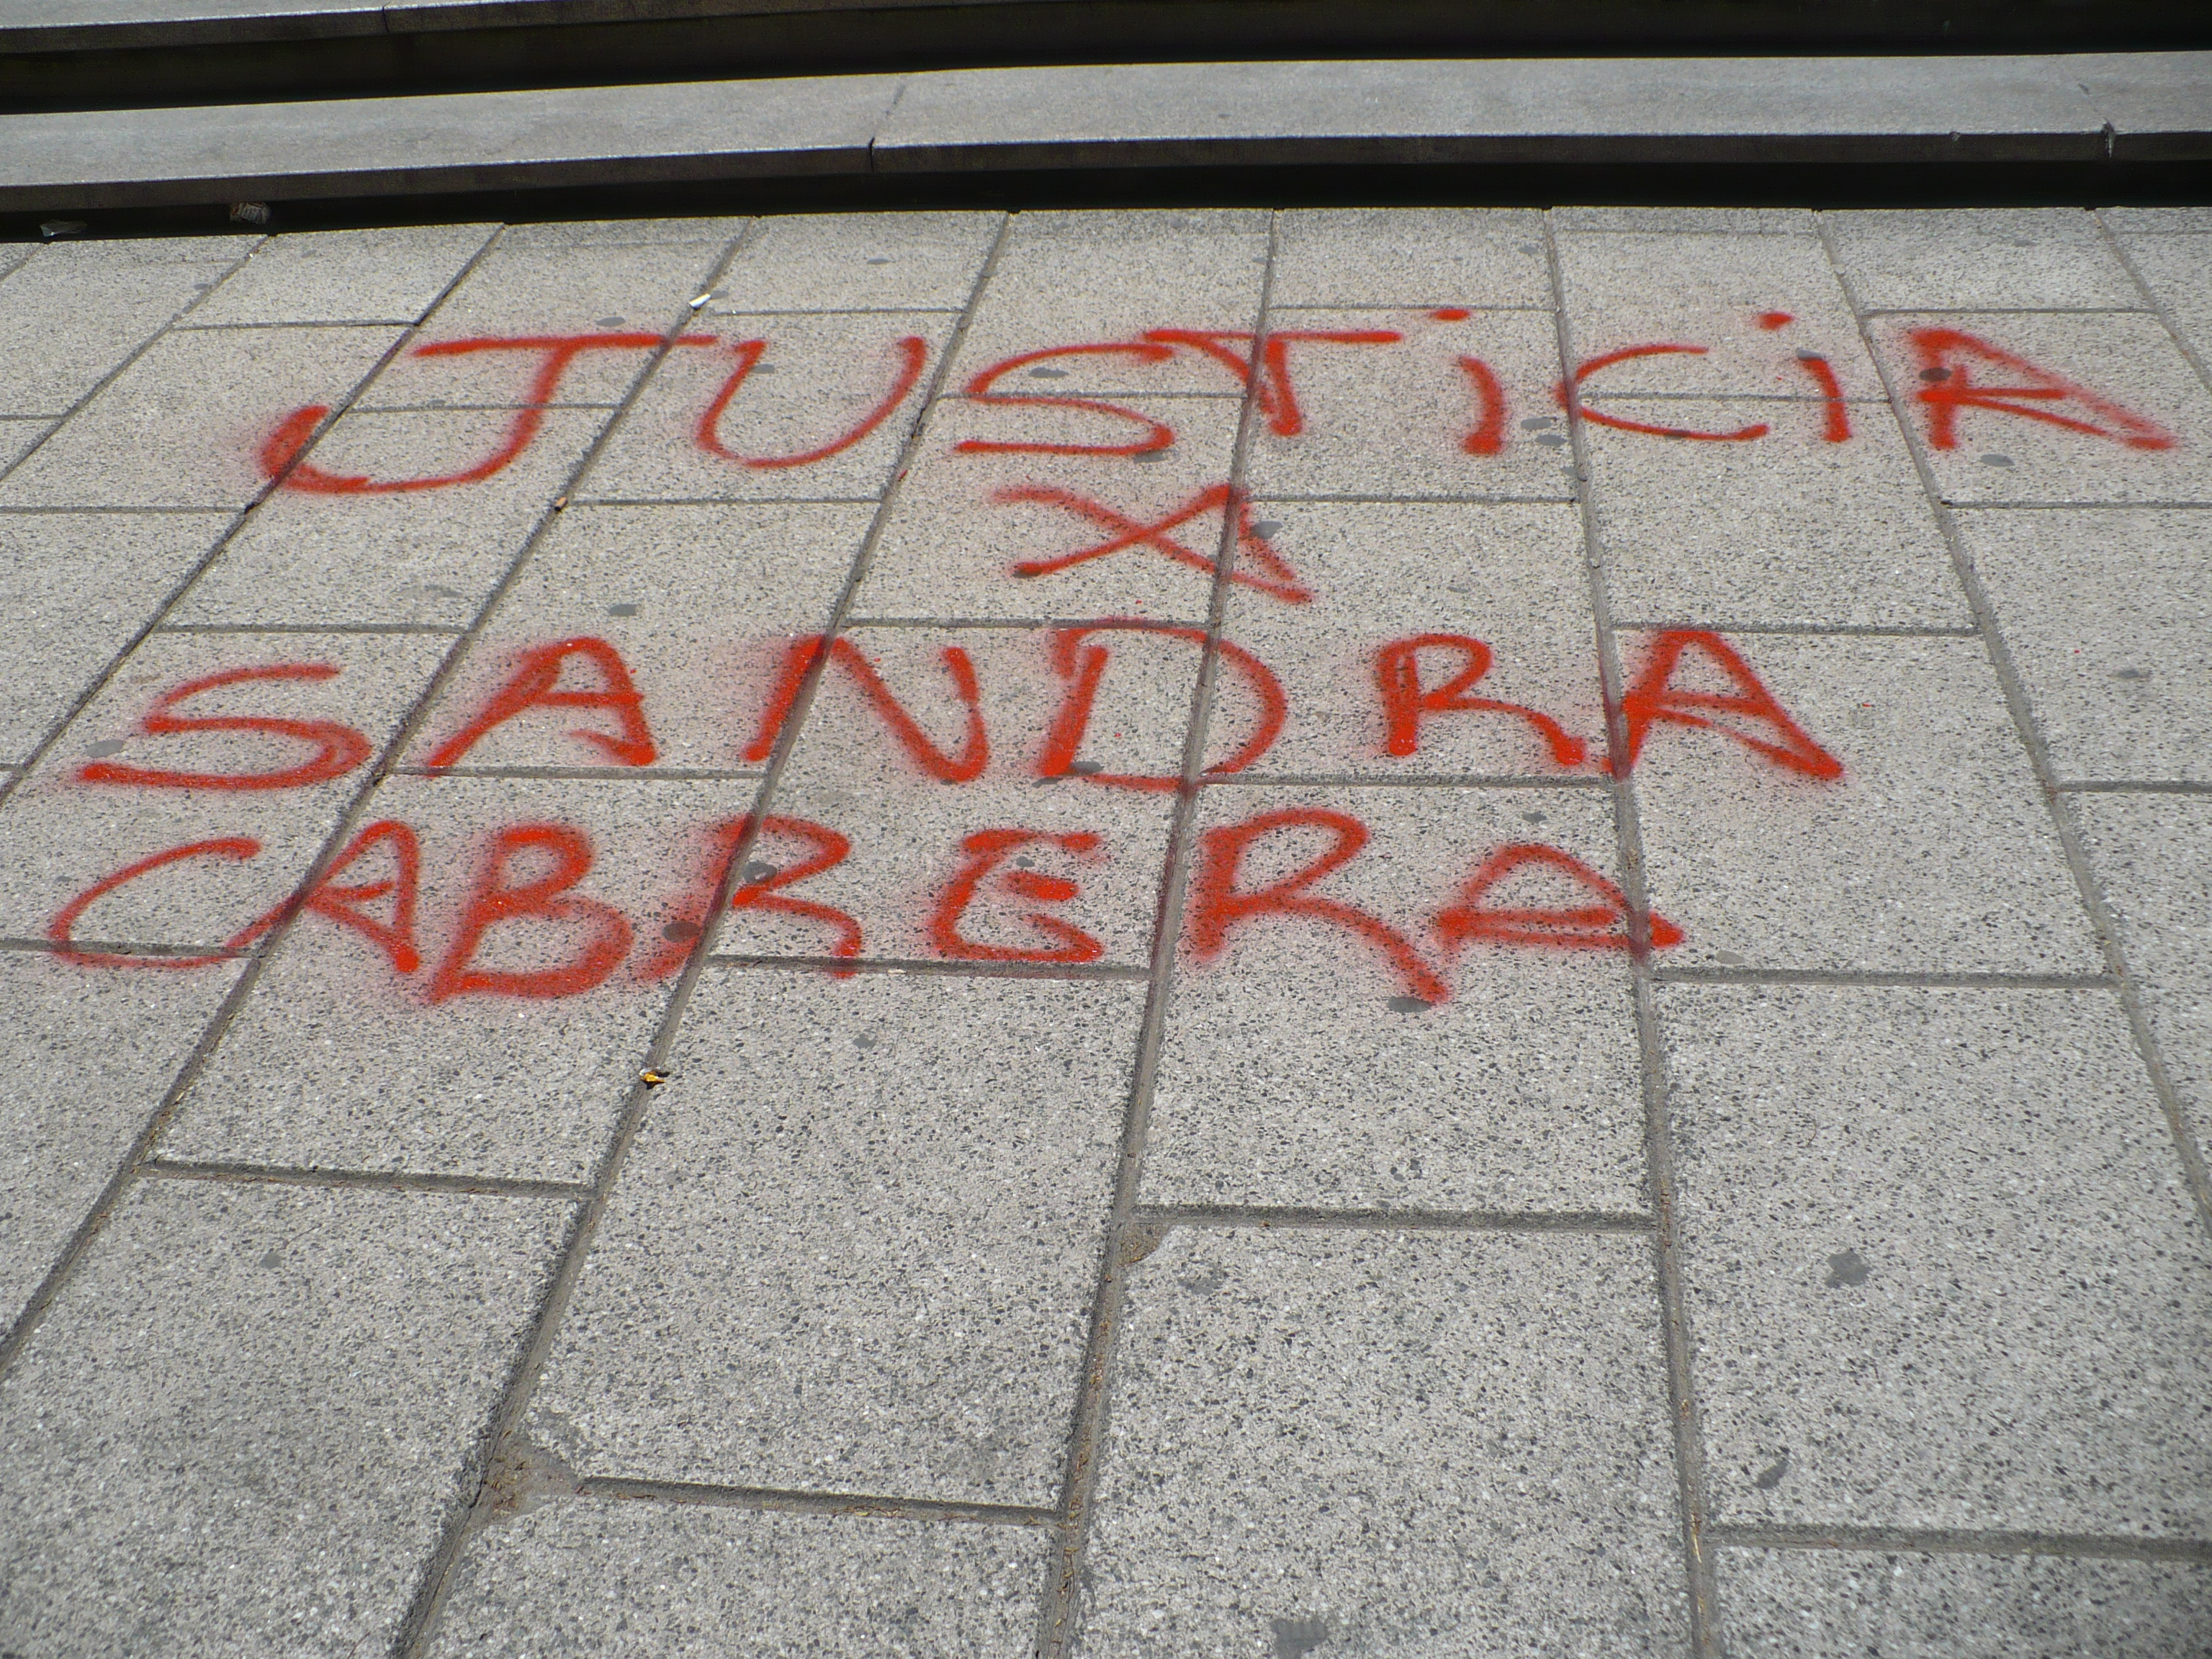 JUSTiCiA
X
SANDRA
CABRERA